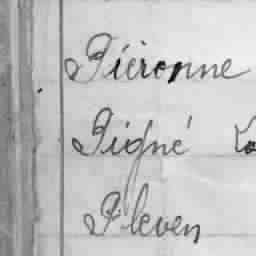 Piéronne
Pigné
Pleven